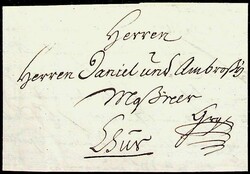 Herren
Herren Daniel und Ambrosÿ
Maßneer
Chúr